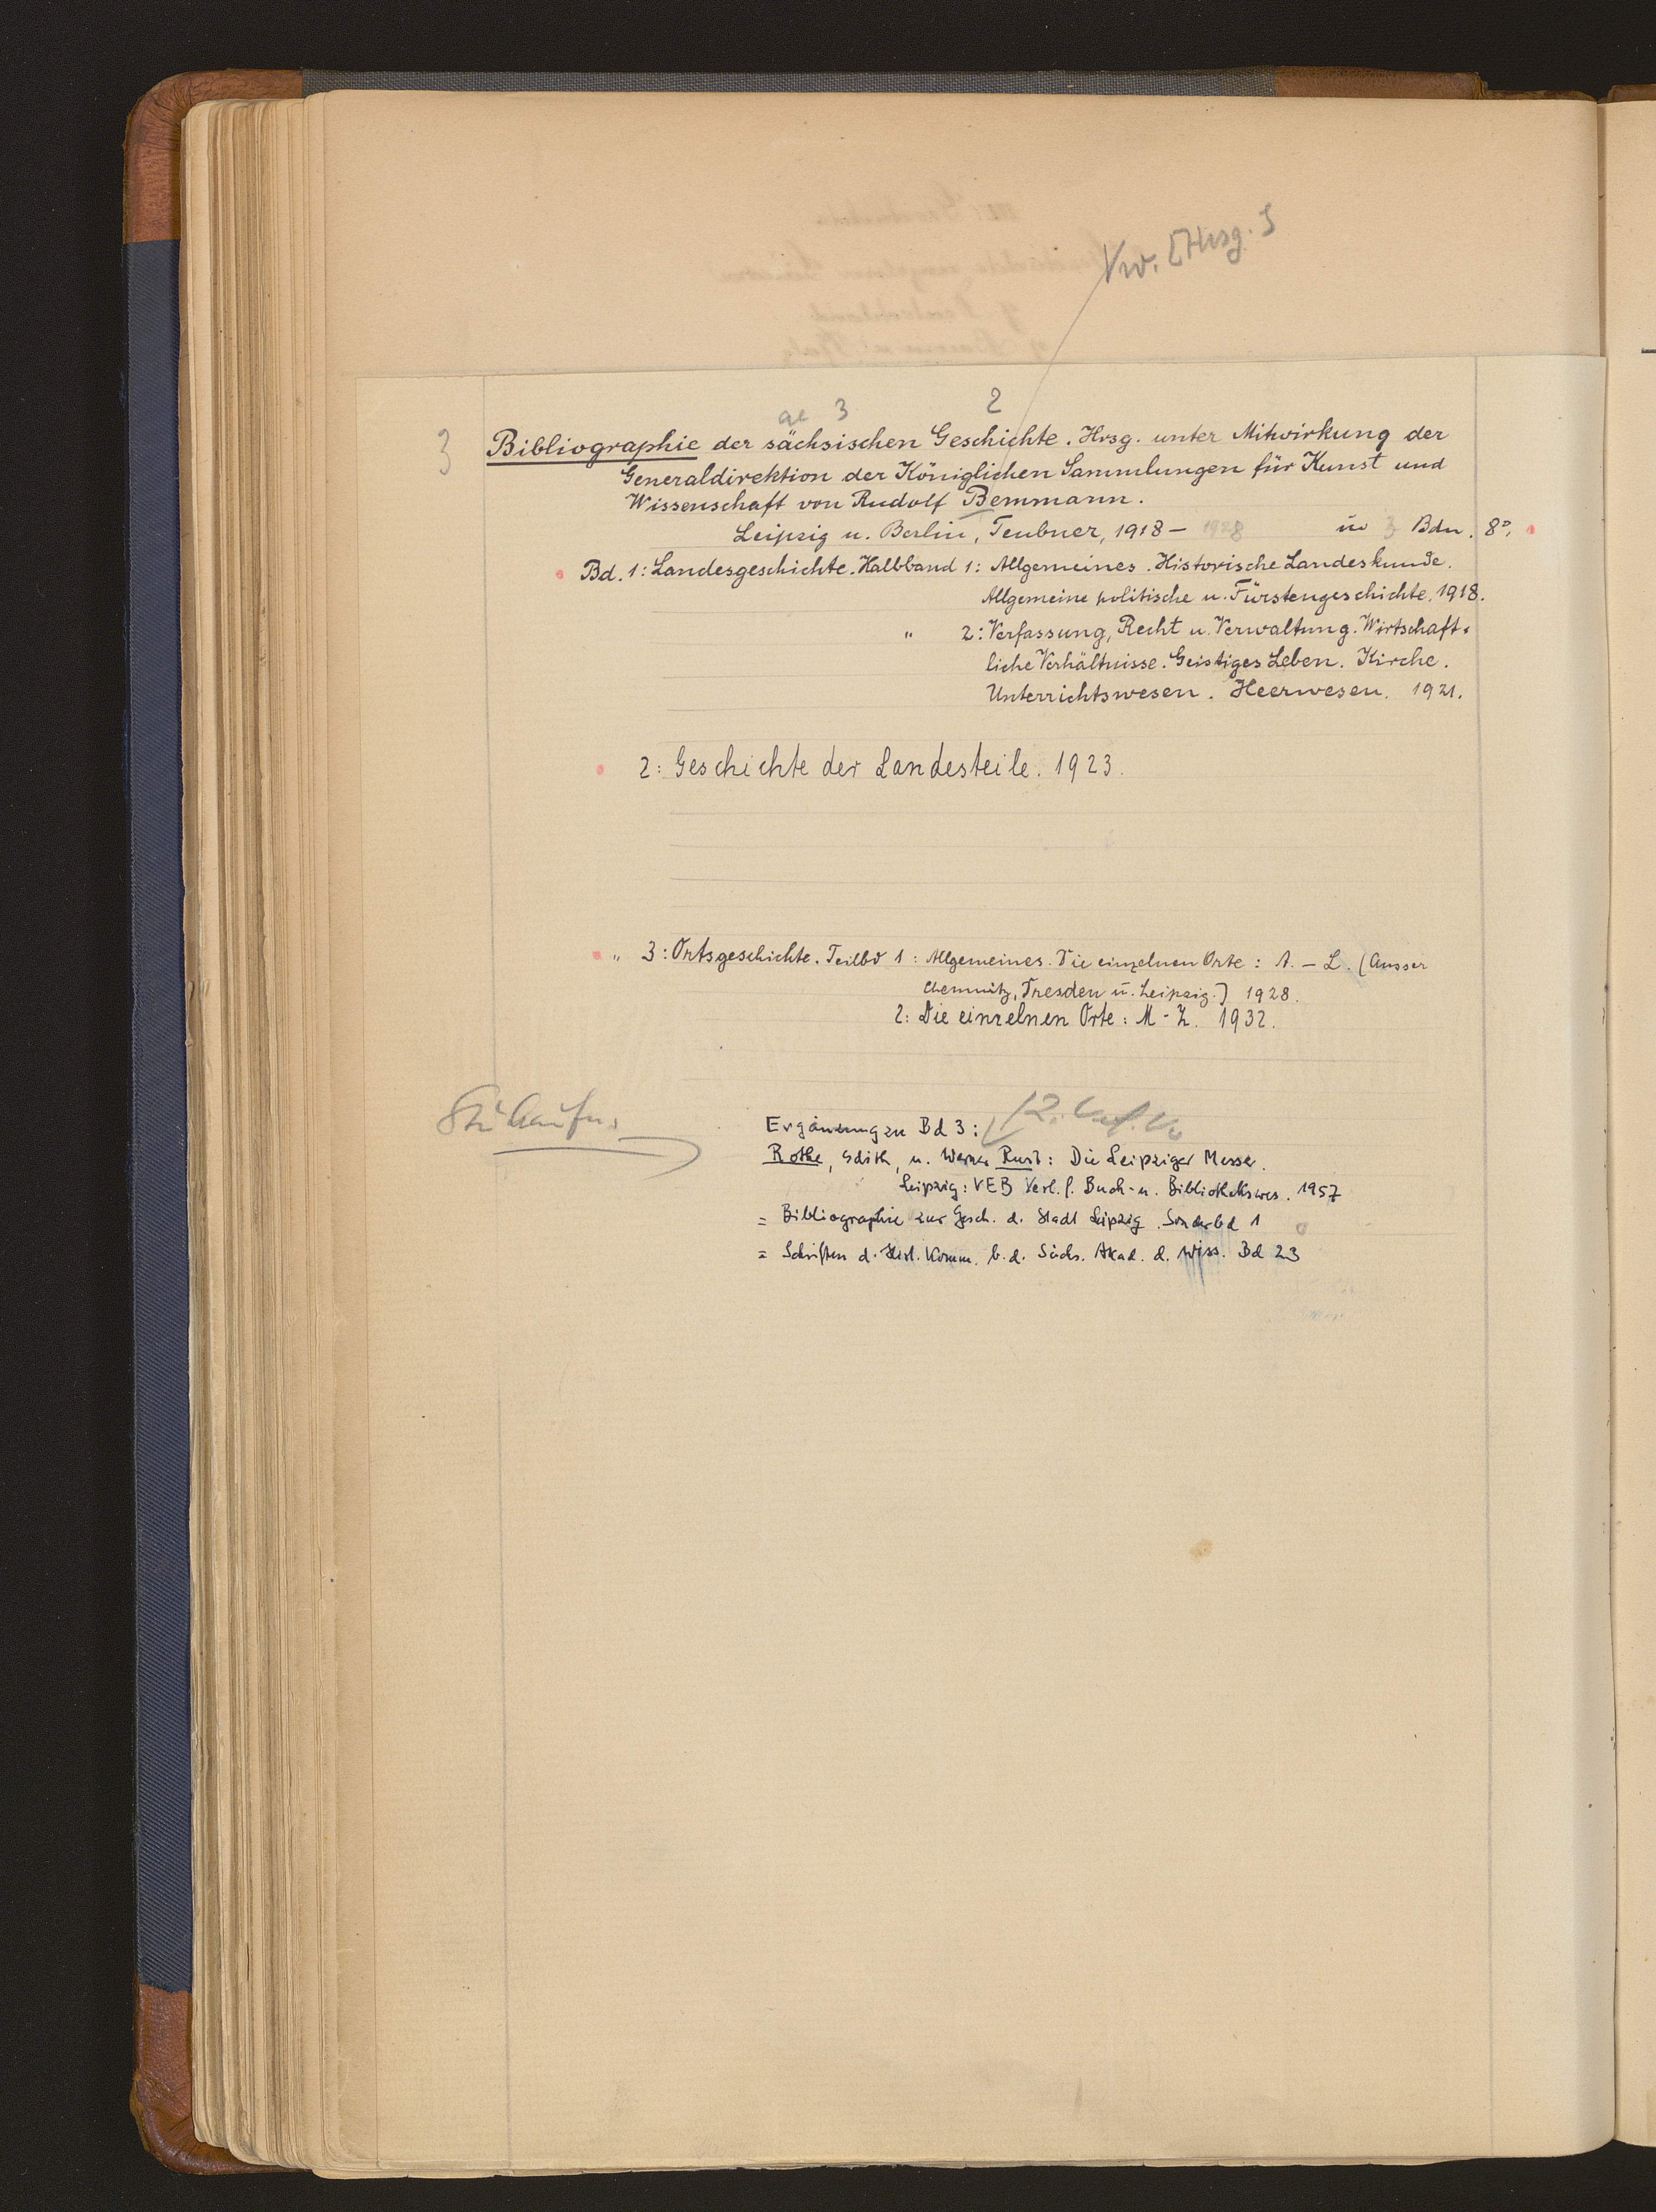 Vw. [Hrsg. ]
ae 3 2
3
Bibliographie der sächsischen Geschichte. Hrsg. unter Mitwirkung der
Generaldirektion der Königlichen Sammlungen für Kunst und
Wissenschaft von Rudolf Bemmann.
Leipzig u. Berlin, Teubner, 1918 – 1928 in 3 Bdn. 8°.
Bd. 1: Landesgeschichte. Halbband 1: Allgemeines. Historische Landeskunde.
Allgemeine politische u. Fürstengeschichte. 1918.
" 2: Verfassung, Recht u. Verwaltung. Wirtschaft-
liche Verhältnisse. Geistiges Leben. Kirche.
Unterrichtswesen. Heerwesen. 1921.
2: Geschichte der Landesteile. 1923.
" 3: Ortsgeschichte. Teilbd 1: Allgemeines. Die einzelnen Orte: A. – L. (Ausser
Chemnitz, Dresden u. Leipzig.) 1928.
2: Die einzelnen Orte: M - Z. 1932.
Ergänzung zu Bd 3:
Rothe, Edith, u. Werner Rust: Die Leipziger Messe.
Leipzig: VEB Verl. f. Buch- u. Bibliothekswes. 1957
= Bibliographie zur Gesch. d. Stadt Leipzig. Sonderbd 1
= Schriften d. Hist. Komm. b. d. Sächs. Akad. d. Wiss. Bd 23